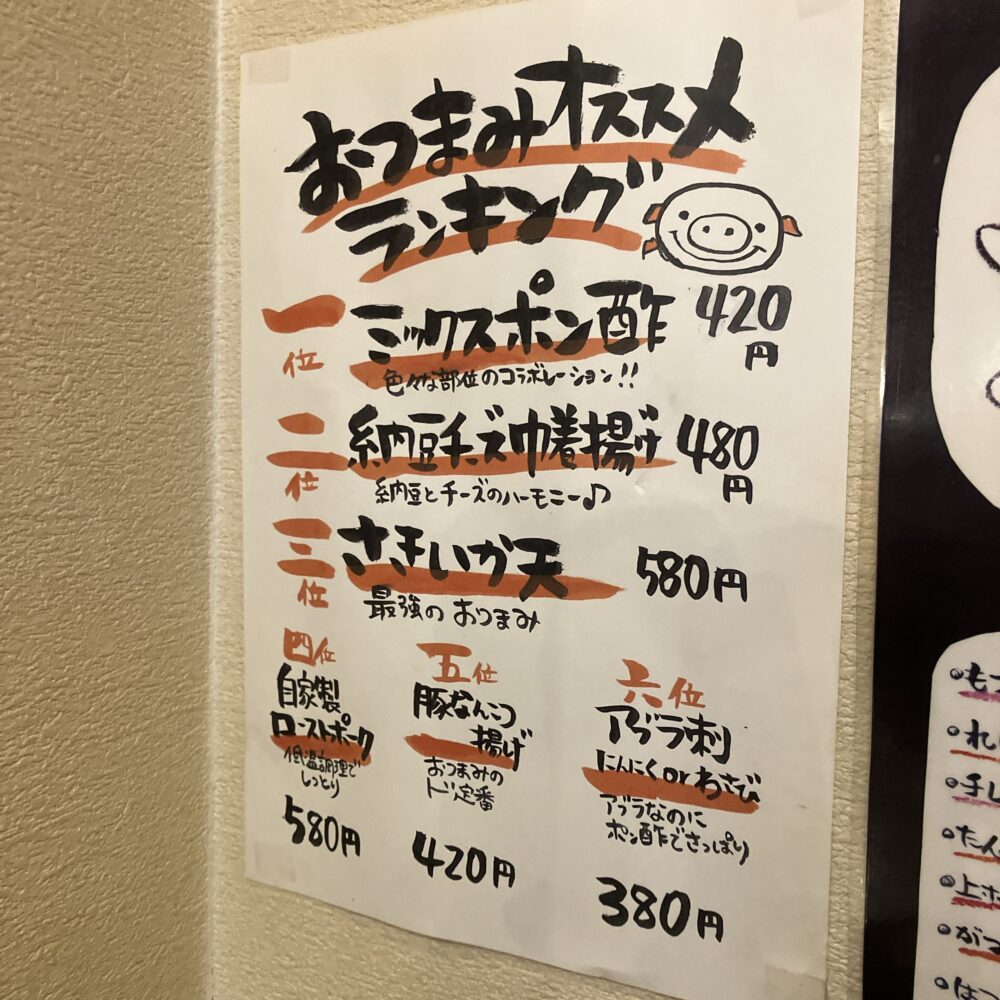 おつまみオススメ
ランキング
一位 ミックスポン酢 420円
色々な部位のコラボレーション!!
二位 納豆チーズ巾着揚げ 480円
納豆とチーズのハーモニー♪
三位 さきいか天 580円
最強のおつまみ
四位
自家製
ローストポーク
低温調理で
しっとり
580円
五位
豚なんこつ
揚げ
おつまみの
ド定番
420円
六位
アブラ刺
にんにくorわさび
アブラなのに
ポン酢でさっぱり
380円